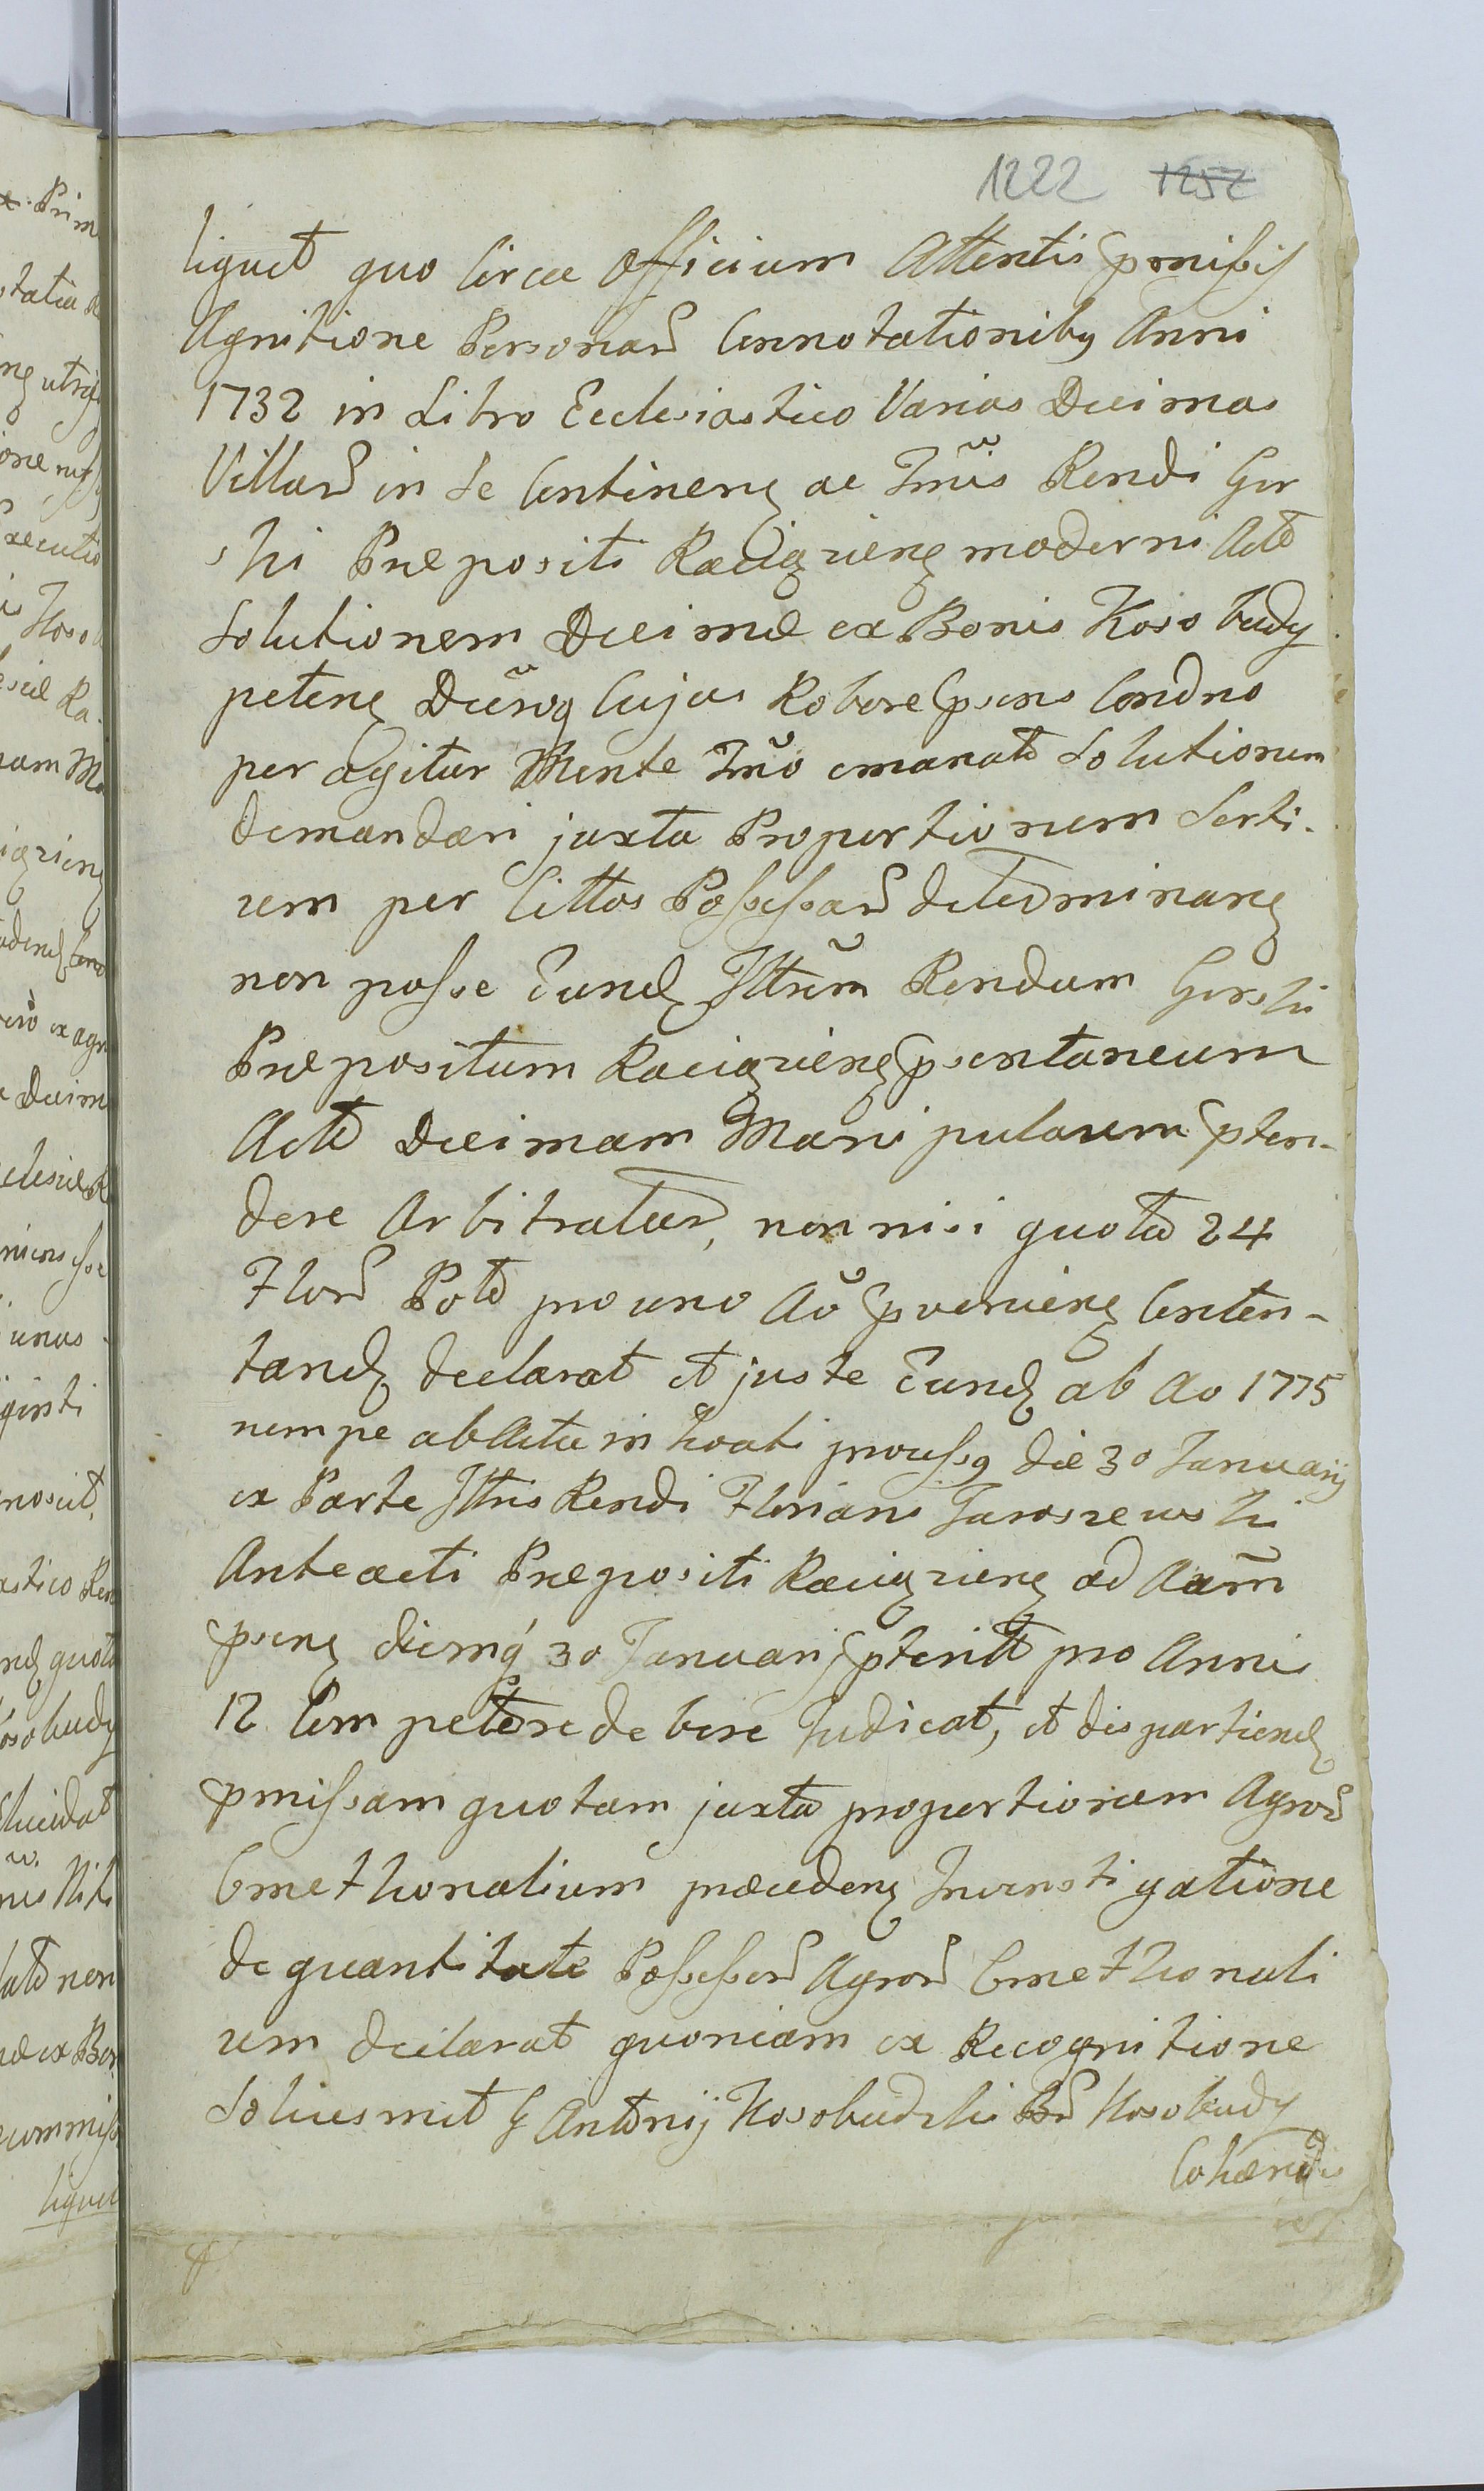 1222 1252
liquet quo circa Officium Attentis pmissis
Agnitione Personar Connotationibq Anni
1732 in Libro Ecclesiastico Varias Decimas
Villar in se Continenς ac Jttris Rendi Gor
ski Præpositi Raciąziens moderni Acto
Solutionem Decimæ ex Bonis Kosobudy
petens Ducrog Cujus Robore psens Condno
per agitur Mente Jttrio emanato Solutionem
demandari juxta Proportionem Sorti-
um per Cittos Possessar determinans
non posse Eund Jttrem Rendum Gorski
Præpositum Raciąziens psentaneum
Acto Decimam Manipularem pten-
dere Arbitratur, non nisi quota 24
Flor Polo pro uno Ao proveniens Conten-
tand declarat et juste Eund ab Ao 1775
nempe ab Actu inchoati processq die 30 Januarij
ex Parte Jttris Rendi Floriani Jaroszewski
Anteacti Præpositi Raciąziens ad Aam
psens diemq 30 Januarij pterit pro Annis
12 Competere debere Judicat, et dispartiend
pmissam quotam juxta proportionem Agror
Cmethonalium præcedens Investigatione
de quantitate Possessor Agror Cmethonali
um declarat quoniam ex Recognitione
Soliusmet G Antonij Kosobudzki Br Kosobudy
Cohæredis